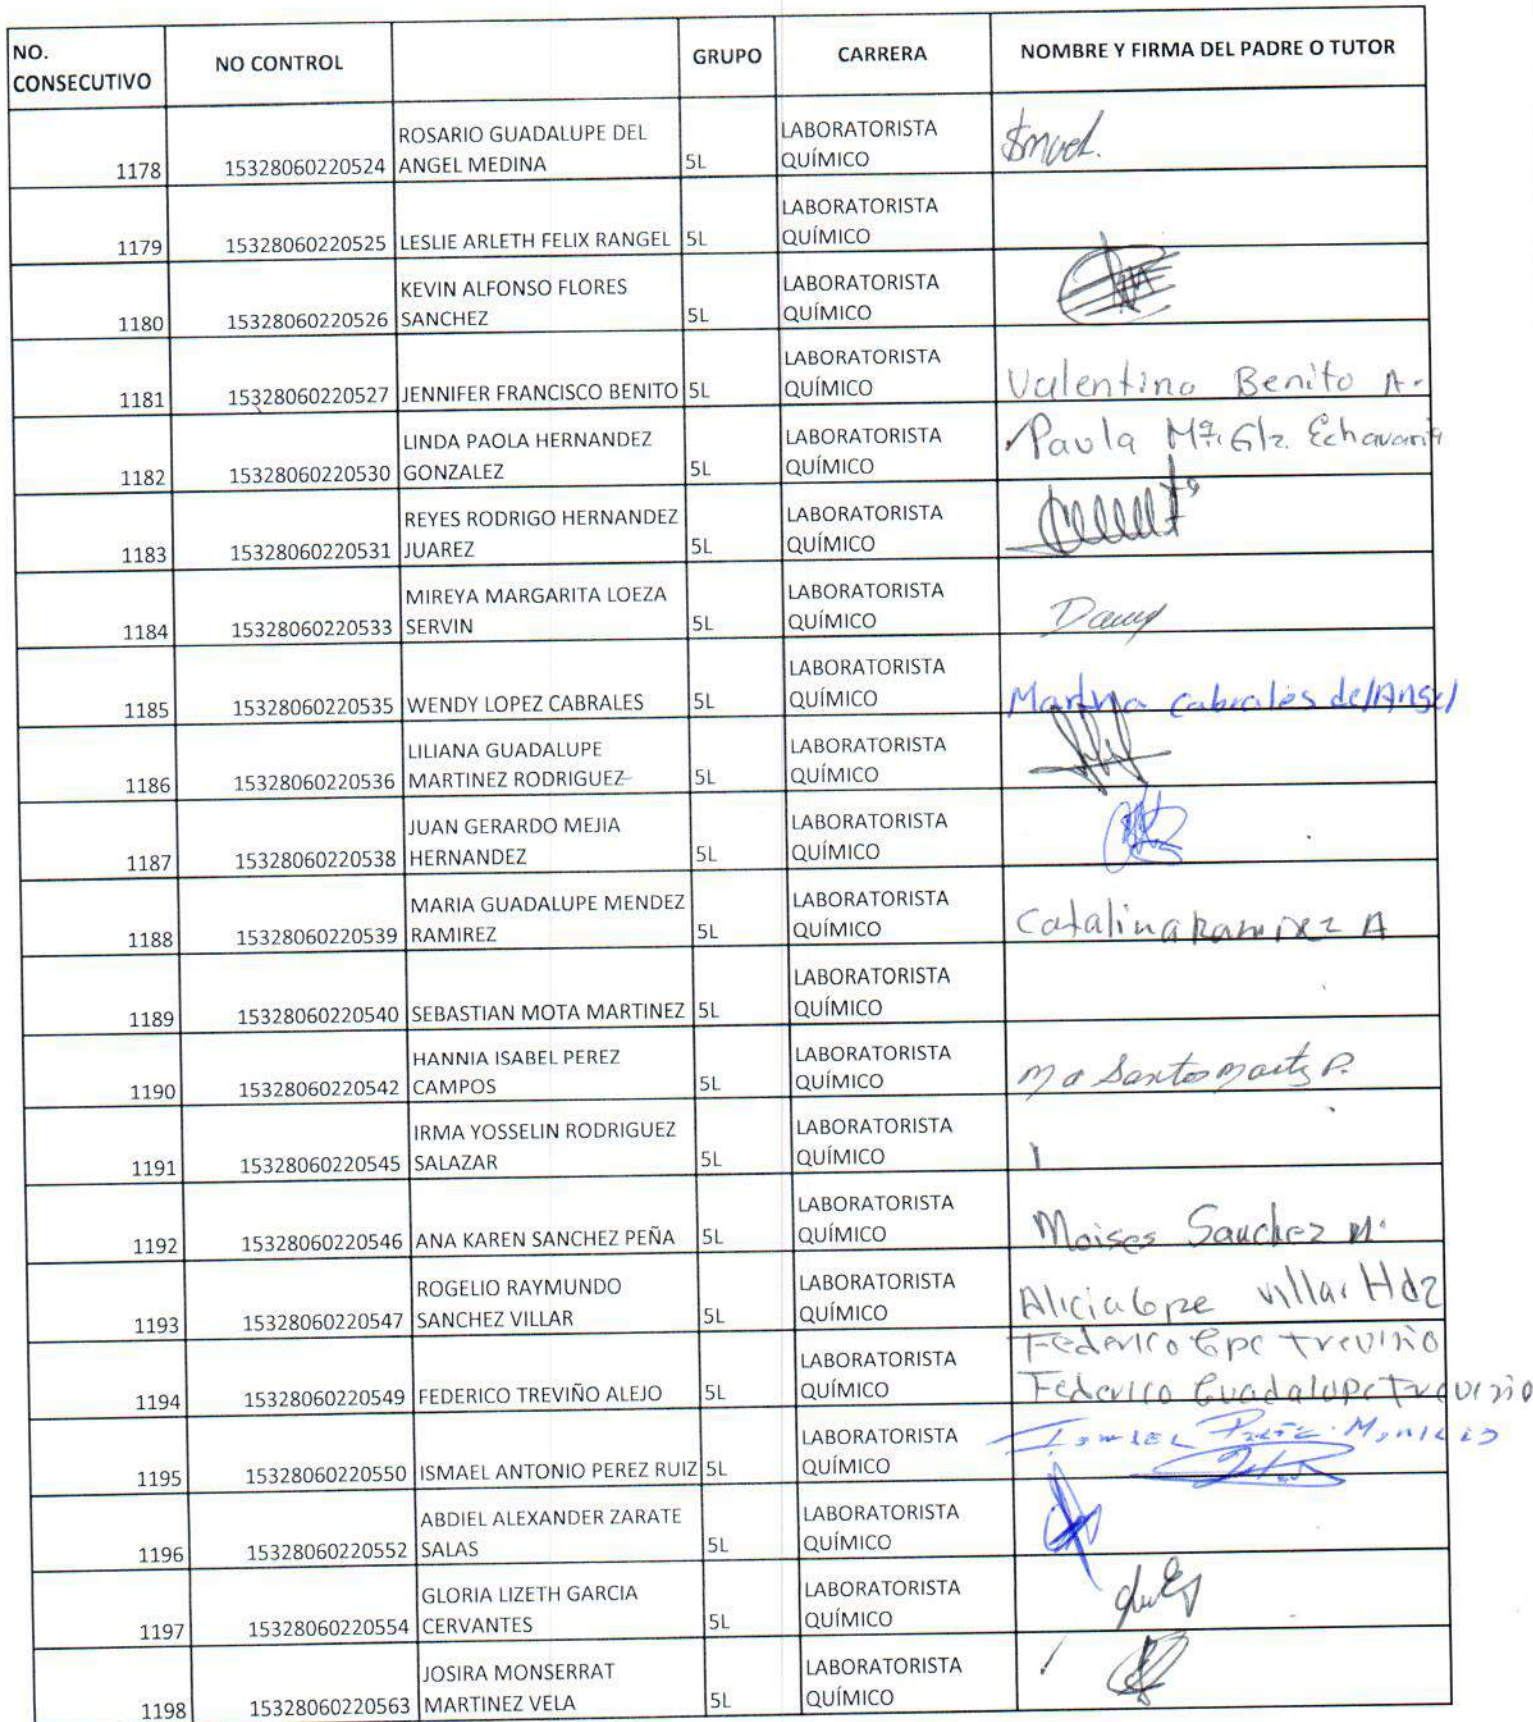 NO. CONSECUTIVO NO CONTROL GRUPO CARRERA NOMBRE Y FIRMA DEL PADRE O TUTOR
1178 15328060220524 ROSARIO GUADALUPE DEL ANGEL MEDINA 5L LABORATORISTA QUÍMICO
1179 15328060220525 LESLIE ARLETH FELIX RANGEL 5L LABORATORISTA QUÍMICO
1180 15328060220526 KEVIN ALFONSO FLORES SANCHEZ 5L LABORATORISTA QUÍMICO
1181 15328060220527 JENNIFER FRANCISCO BENITO 5L LABORATORISTA QUÍMICO Valentina Benito A.
1182 15328060220530 LINDA PAOLA HERNANDEZ GONZALEZ 5L LABORATORISTA QUÍMICO Paula Mª. Glz. Echavarria
1183 15328060220531 REYES RODRIGO HERNANDEZ JUAREZ 5L LABORATORISTA QUÍMICO
1184 15328060220533 MIREYA MARGARITA LOEZA SERVIN 5L LABORATORISTA QUÍMICO
1185 15328060220535 WENDY LOPEZ CABRALES 5L LABORATORISTA QUÍMICO Cabrales del Angel
1186 15328060220536 LILIANA GUADALUPE MARTINEZ RODRIGUEZ 5L LABORATORISTA QUÍMICO
1187 15328060220538 JUAN GERARDO MEJIA HERNANDEZ 5L LABORATORISTA QUÍMICO
1188 15328060220539 MARIA GUADALUPE MENDEZ RAMIREZ 5L LABORATORISTA QUÍMICO Catalina Ramirez A
1189 15328060220540 SEBASTIAN MOTA MARTINEZ 5L LABORATORISTA QUÍMICO
1190 15328060220542 HANNIA ISABEL PEREZ CAMPOS 5L LABORATORISTA QUÍMICO Ma Santos Martz P.
1191 15328060220545 IRMA YOSSELIN RODRIGUEZ SALAZAR 5L LABORATORISTA QUÍMICO
1192 15328060220546 ANA KAREN SANCHEZ PEÑA 5L LABORATORISTA QUÍMICO Moises Sanchez M.
1193 15328060220547 ROGELIO RAYMUNDO SANCHEZ VILLAR 5L LABORATORISTA QUÍMICO Alicia Gpe Villar Hdz
1194 15328060220549 FEDERICO TREVIÑO ALEJO 5L LABORATORISTA QUÍMICO Federico Gpe Treviño
Federico Guadalupe Treviño
1195 15328060220550 ISMAEL ANTONIO PEREZ RUIZ 5L LABORATORISTA QUÍMICO Ismael Perez
1196 15328060220552 ABDIEL ALEXANDER ZARATE SALAS 5L LABORATORISTA QUÍMICO
1197 15328060220554 GLORIA LIZETH GARCIA CERVANTES 5L LABORATORISTA QUÍMICO
1198 15328060220563 JOSIRA MONSERRAT MARTINEZ VELA 5L LABORATORISTA QUÍMICO